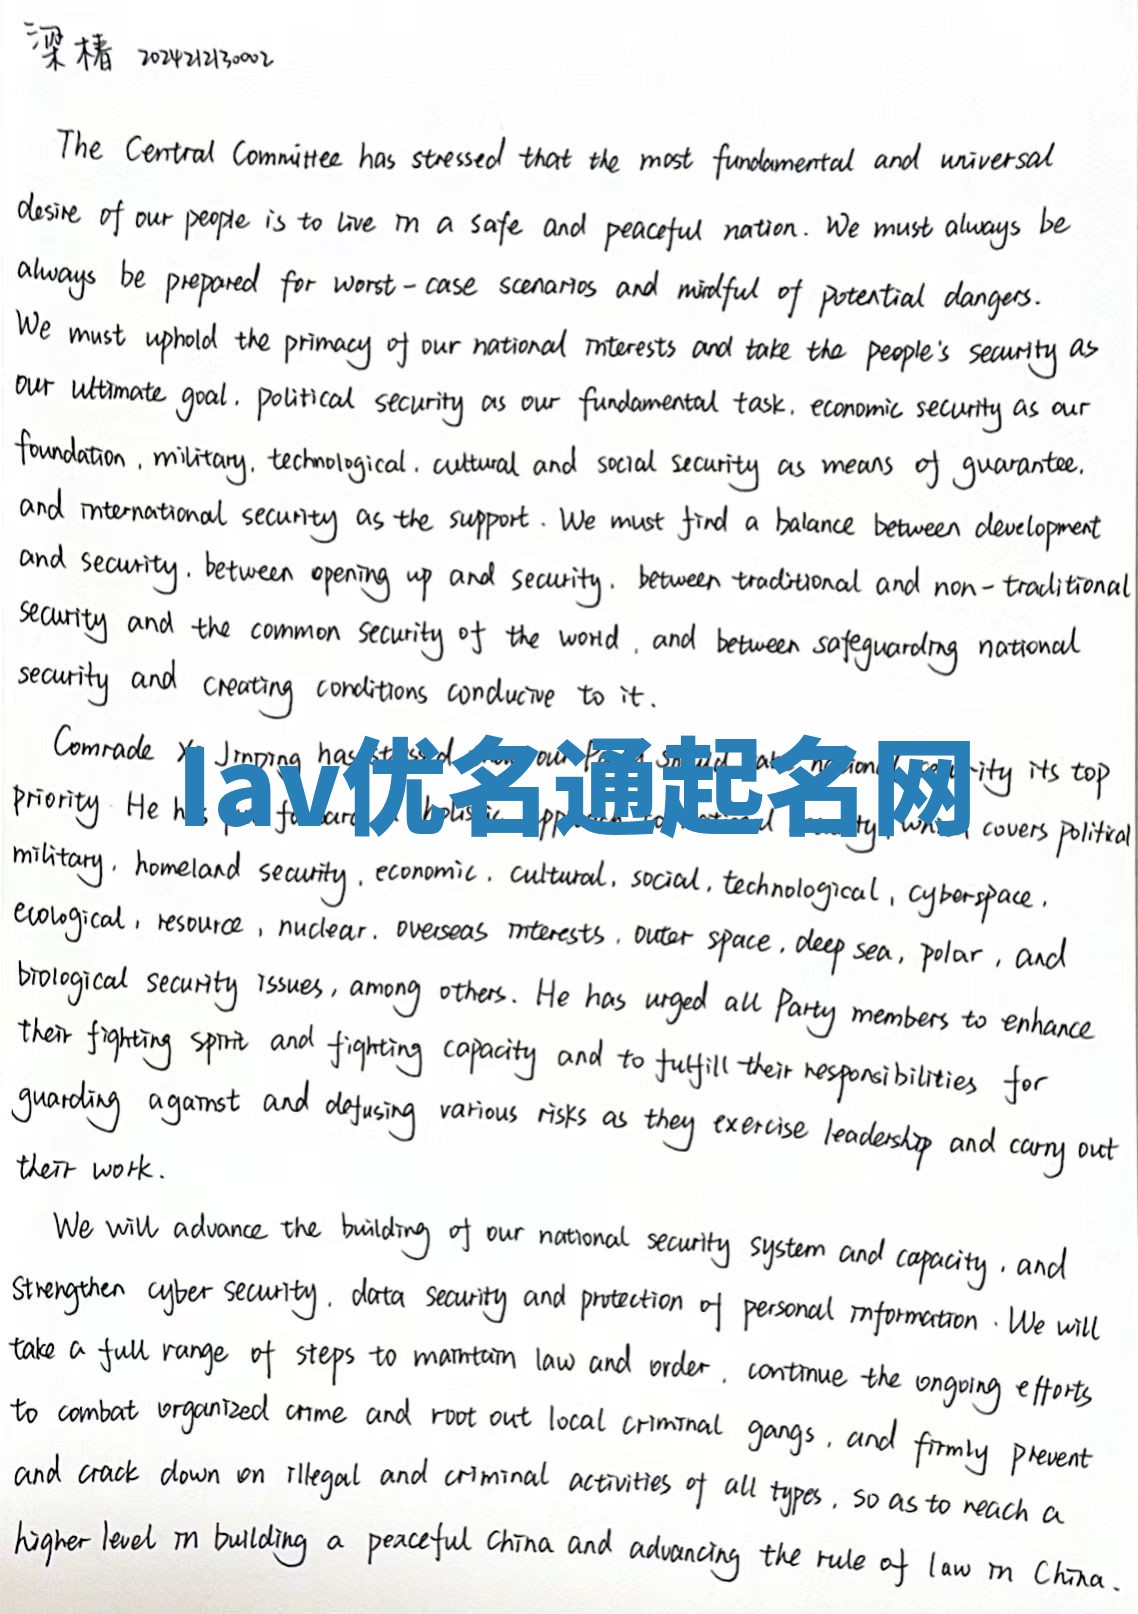 梁椿 2024212130002
The Central Committee has stressed that the most fundamental and universal
desire of our people is to live in a safe and peaceful nation. We must always be
always be prepared for worst-case scenarios and mindful of potential dangers.
We must uphold the primacy of our national interests and take the people's security as
our ultimate goal, political security as our fundamental task, economic security as our
foundation, military, technological, cultural and social security as means of guarantee,
and international security as the support. We must find a balance between development
and security, between opening up and security, between traditional and non-traditional
security and the common security of the world, and between safeguarding national
security and creating conditions conducive to it.
Comrade Xi Jinping has stressed our its top
lav优名通起名网
priority. He covers political
military, homeland security, economic, cultural, social, technological, cyberspace,
ecological, resource, nuclear, overseas interests, outer space, deep sea, polar, and
biological security issues, among others. He has urged all Party members to enhance
their fighting spirit and fighting capacity and to fulfill their responsibilities for
guarding against and defusing various risks as they exercise leadership and carry out
their work.
We will advance the building of our national security system and capacity, and
strengthen cyber security, data security and protection of personal information. We will
take a full range of steps to maintain law and order, continue the ongoing efforts
to combat organized crime and root out local criminal gangs, and firmly prevent
and crack down on illegal and criminal activities of all types, so as to reach a
higher level in building a peaceful China and advancing the rule of law in China.